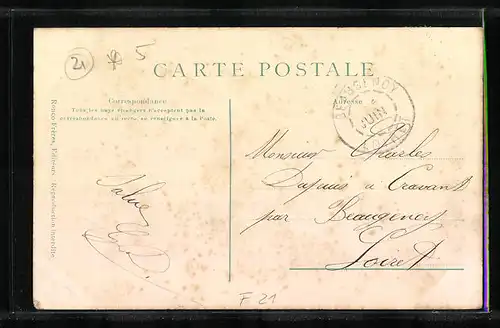 21
5
CARTE POSTALE
Correspondance
Tous les pays étrangers n'acceptent pas la
correspondance au recto, se renseigner à la Poste.
Adresse
BEAUGENCY
JUIN
LOIRET
Ronco Frères, Éditeurs - Reproduction interdite.
Monsieur Charles
Dupuis à Cravant
par Beaugency
Loiret
F 21